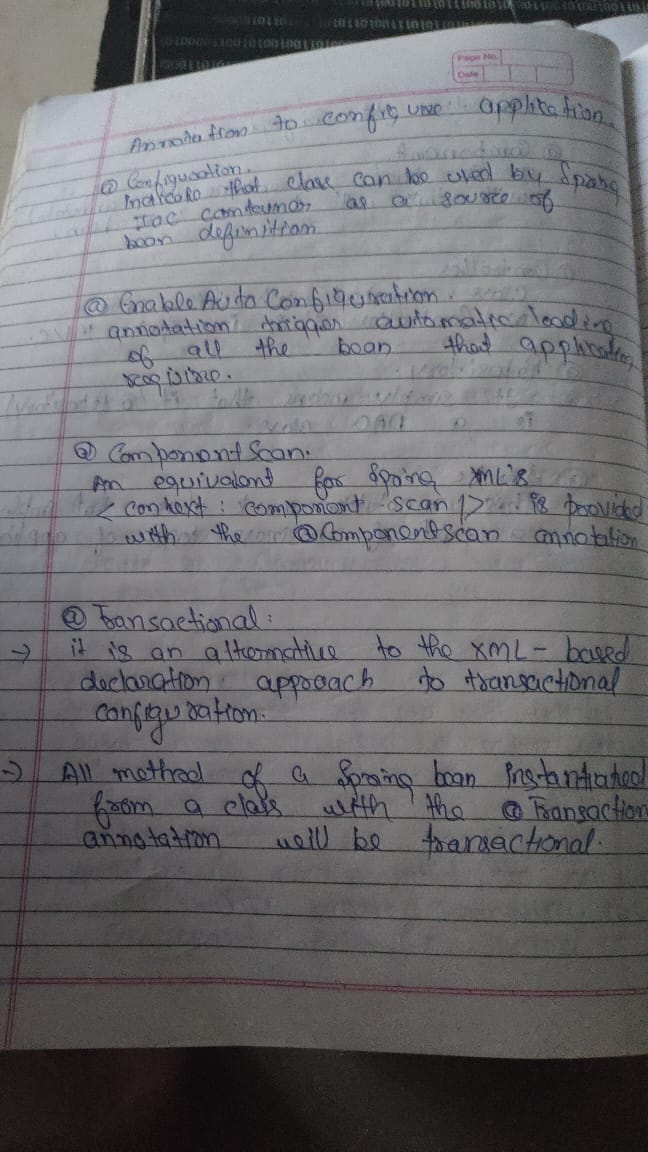 Page No.
Date
Annotation to configure application
@ Configuration.
Indicate that class can be used by Spring
IoC container as a source of
bean definition
@ Enable Auto Configuration.
annotation trigger automatic loading
of all the bean that application
require.
@ Component Scan.
An equivalent for Spring XML's
< context : component - scan /> is provided
with the @Componentscan annotation
@ Transactional :
→ it is an alternative to the XML - based
declaration approach to transactional
configuration.
→ All method of a Spring bean instantiated
from a class with the @ Transaction
annotation will be transactional.